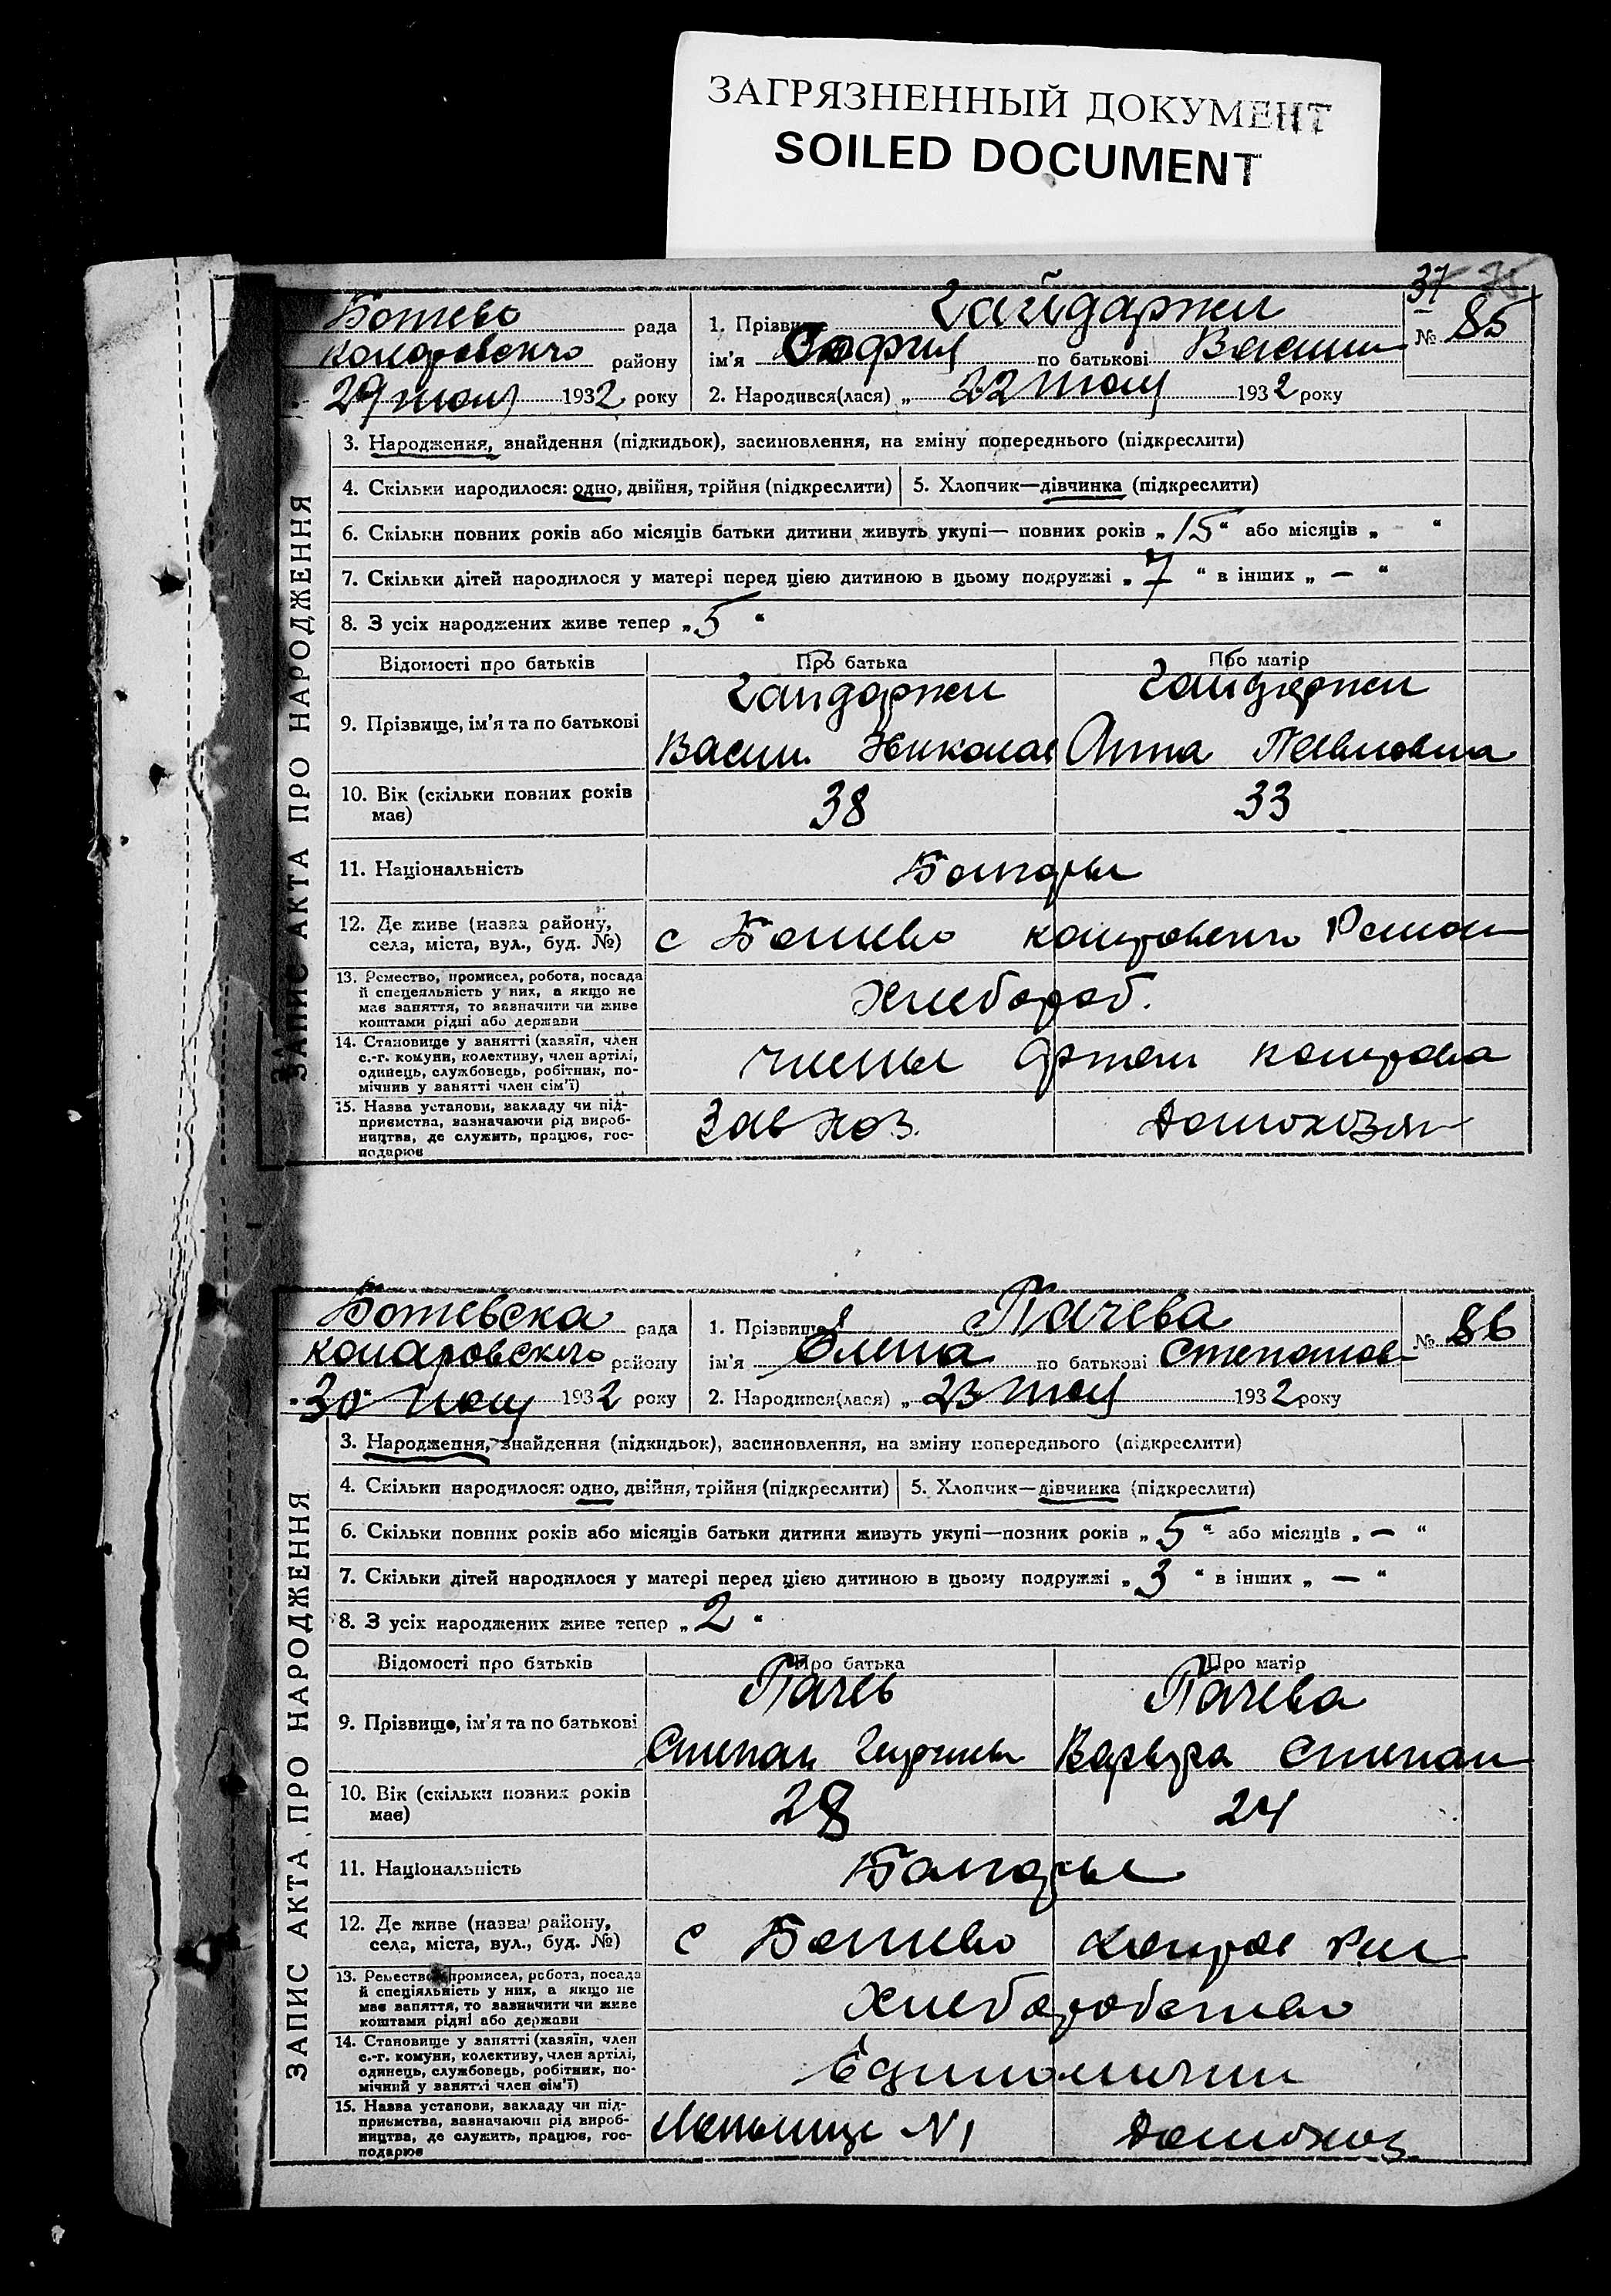 ЗАГРЯЗНЕННЫЙ ДОКУМЕНТ
SOILED DOCUMENT
37
ЗАПИС АКТА ПРО НАРОДЖЕННЯ
Ботево рада
района району
29 1932 року
1. Прізвище Гайдаржи
ім'я София по батькові Васили
№ 85
2. Народився(лася) „ 22 1932 року
3. Народження, знайдення (підкидьок), засиновлення, на зміну попереднього (підкреслити)
4. Скільки народилося: одно, двійня, трійня (підкреслити) 5. Хлопчик—дівчинка (підкреслити)
6. Скільки повних років або місяців батьки дитини живуть укупі— повних років „ 15 “ або місяців „ - “
7. Скільки дітей народилося у матері перед цією дитиною в цьому подружжі „ 7 “ в інших „ — “
8. З усіх народжених живе тепер „ 5 “
Відомості про батьків Про батька Про матір
9. Прізвище, ім'я та по батькові
Гайдаржи Гайдаржи
Васил. Николае Анна Павловна
10. Вік (скільки повних років має) 38 33
11. Національність Болгары
12. Де живе (назва району, села, міста, вул., буд. №) с Ботево
13. Ремество, промисел, робота, посада
й спецеяльність у них, а якщо не
має заняття, то зазначити чи живе
коштами рідні або держави
Хлебороб.
14. Становище у занятті (хазяїн, член
с.-г. комуни, колективу, член артілі,
одинець, службовець, робітник, по-
мічник у занятті член сім'ї)
члены Артели
15. Назва установи, закладу чи під-
приємства, зазначаючи рід вироб-
ництва, де служить, працює, гос-
подарює
Зав хоз. Домохозяй
ЗАПИС АКТА ПРО НАРОДЖЕННЯ
Ботевска рада
Коларовского району
30 1932 року
1. Прізвище Пачева
ім'я Олена по батькові Степанов
№ 86
2. Народився(лася) „ 23 1932 року
3. Народження, знайдення (підкидьок), засиновлення, на зміну попереднього (підкреслити)
4. Скільки народилося: одно, двійня, трійня (підкреслити) 5. Хлопчик—дівчинка (підкреслити)
6. Скільки повних років або місяців батьки дитини живуть укупі—повних років „ 5 “ або місяців „ — “
7. Скільки дітей народилося у матері перед цією дитиною в цьому подружжі „ 3 “ в інших „ — “
8. З усіх народжених живе тепер „ 2 “
Відомості про батьків Про батька Про матір
9. Прізвище, ім'я та по батькові
Пачев Пачева
Степан Варвара Степан
10. Вік (скільки повних років має) 28 24
11. Національність Болгары
12. Де живе (назва району, села, міста, вул., буд. №) с Ботево
13. Ремество, промисел, робота, посада
й спеціяльність у них, а якщо не
має заняття, то зазначити чи живе
коштами рідні або держави
Хлеборобство
14. Становище у занятті (хазяїн, член
с.-г. комуни, колективу, член артілі,
одинець, службовець, робітник, по-
мічний у занятті член сім'ї)
Единоличн
15. Назва установи, закладу чи під-
приємства, зазначаючи рід вироб-
ництва, де служить, працює, гос-
подарює
N 1 Домохоз